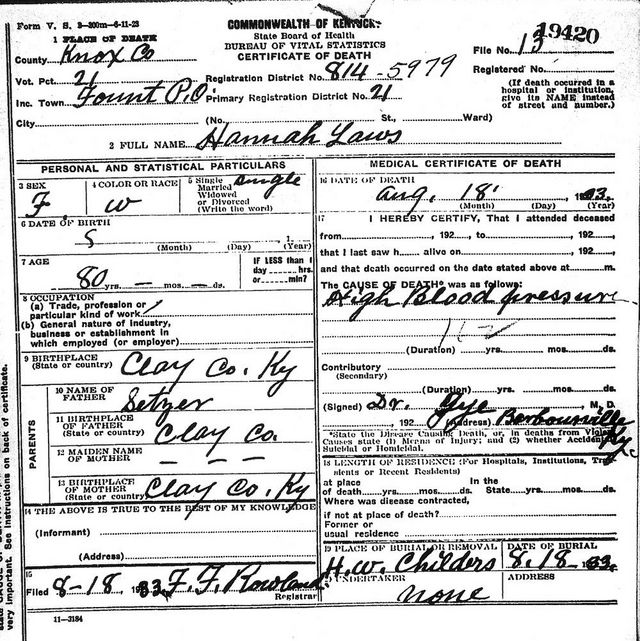 Form V. S. 3—300m—6-11-23
COMMONWEALTH OF KENTUCKY
State Board of Health
BUREAU OF VITAL STATISTICS
CERTIFICATE OF DEATH
19420
File No. 13
Registered No.
(If death occurred in a hospital or institution, give its NAME instead of street and number.)
1 PLACE OF DEATH
County Knox Co
Vot. Pct. 21
Registration District No. 814-5979
Inc. Town Fount P.O. Primary Registration District No. 21
City (No. St., Ward)
2 FULL NAME Hannah Laws
PERSONAL AND STATISTICAL PARTICULARS
3 SEX F.
4 COLOR OR RACE W
5 Single Married Widowed or Divorced (Write the word) single
6 DATE OF BIRTH
(Month) (Day) (Year)
7 AGE
80 yrs. — mos. — ds.
IF LESS than 1 day hrs. or min?
8 OCCUPATION
(a) Trade, profession or particular kind of work
(b) General nature of industry, business or establishment in which employed (or employer)
9 BIRTHPLACE (State or country) Clay Co. Ky
PARENTS
10 NAME OF FATHER Setzer
11 BIRTHPLACE OF FATHER (State or country) Clay Co.
12 MAIDEN NAME OF MOTHER — — —
13 BIRTHPLACE OF MOTHER (State or country) Clay Co. Ky
14 THE ABOVE IS TRUE TO THE BEST OF MY KNOWLEDGE
(Informant)
(Address)
15
Filed 8-18 1933. F. F. Rowland
Registrar
11—3184
MEDICAL CERTIFICATE OF DEATH
16 DATE OF DEATH
Aug. 18 33.
(Month) (Day) (Year)
17 I HEREBY CERTIFY, That I attended deceased
from , 192 , to , 192 ,
that I last saw h alive on , 192 ,
and that death occurred on the date stated above at m.
The CAUSE OF DEATH* was as follows:
High Blood pressure
(Duration) yrs. mos. ds.
Contributory
(Secondary)
(Duration) yrs. mos. ds.
(Signed) Dr. Gye, M. D.
, 192 (Address) Barbourville Ky.
*State the Disease Causing Death, or, in deaths from Violent
Causes state (1) Means of Injury; and (2) whether Accidental,
Suicidal or Homicidal.
18 LENGTH OF RESIDENCE (For Hospitals, Institutions,
or Recent Residents)
at place In the
of death yrs. mos. ds. State yrs. mos. ds.
Where was disease contracted,
if not at place of death?
Former or
usual residence
19 PLACE OF BURIAL OR REMOVAL DATE OF BURIAL
H. W. Childers 8.18 33.
UNDERTAKER ADDRESS
none
very important. See instructions on back of certificate.